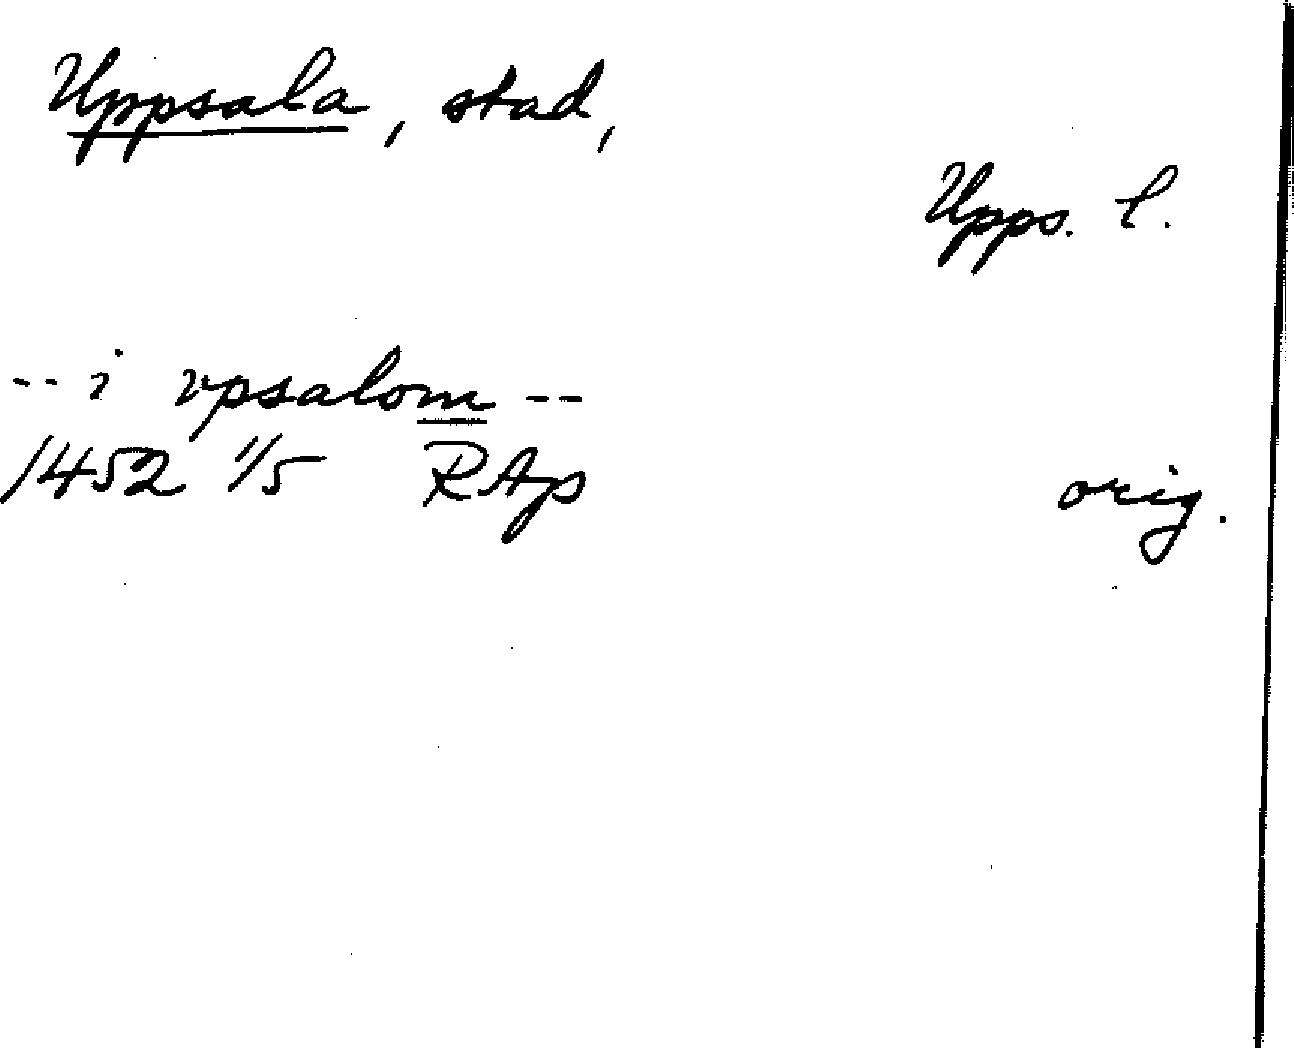 Uppsala, stad,
Upps. l.
-- i vpsalom --
1452 1/5 RAp orig.